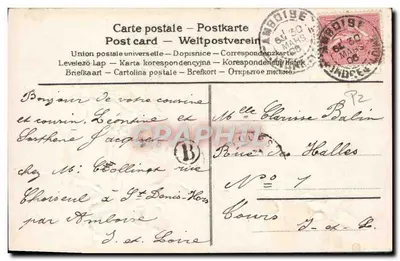 Carte postale - Postkarte
Post card - Weltpostverein
Union postale universelle - Dopisnice - Correspondenzkarte
Levelező Lap - Karta korespondencyjna - Korespondenčni listek
Briefkaart - Cartolina postale - Brefkort - Открытое письмо
AMBOISE
AMBOISE
P2
Bonjour de votre cousine
et cousin Léontine et
Jacques
chez M.
rue
Choiseul à St Denis-Hors
par Amboise
I. et Loire
B
CPARAMA
Mlle Clarisse Babin
Rue des Halles
No 1
Tours
I-et-L.